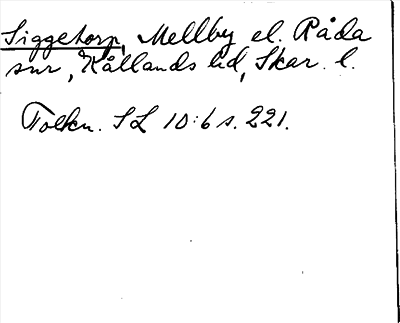 Siggetorp, Mellby el. Råda
snr, Kållands hd, Skar. l.
Tolkn. SL 10:6 s. 221.